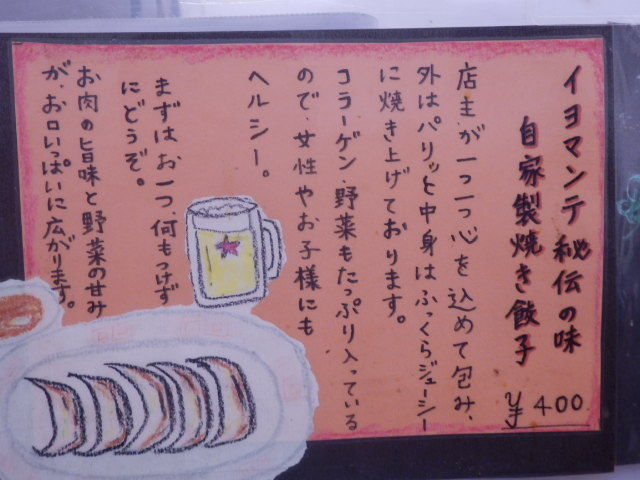 イヨマンテ秘伝の味
自家製焼き餃子
¥400
店主が一つ一つ心を込めて包み、
外はパリッと中身はふっくらジューシー
に焼き上げております。
コラーゲン、野菜もたっぷり入っている
ので、女性やお子様にも
ヘルシー。
まずはお一つ、何もつけず
にどうぞ。
お肉の旨味と野菜の甘み
が、お口いっぱいに広がります。